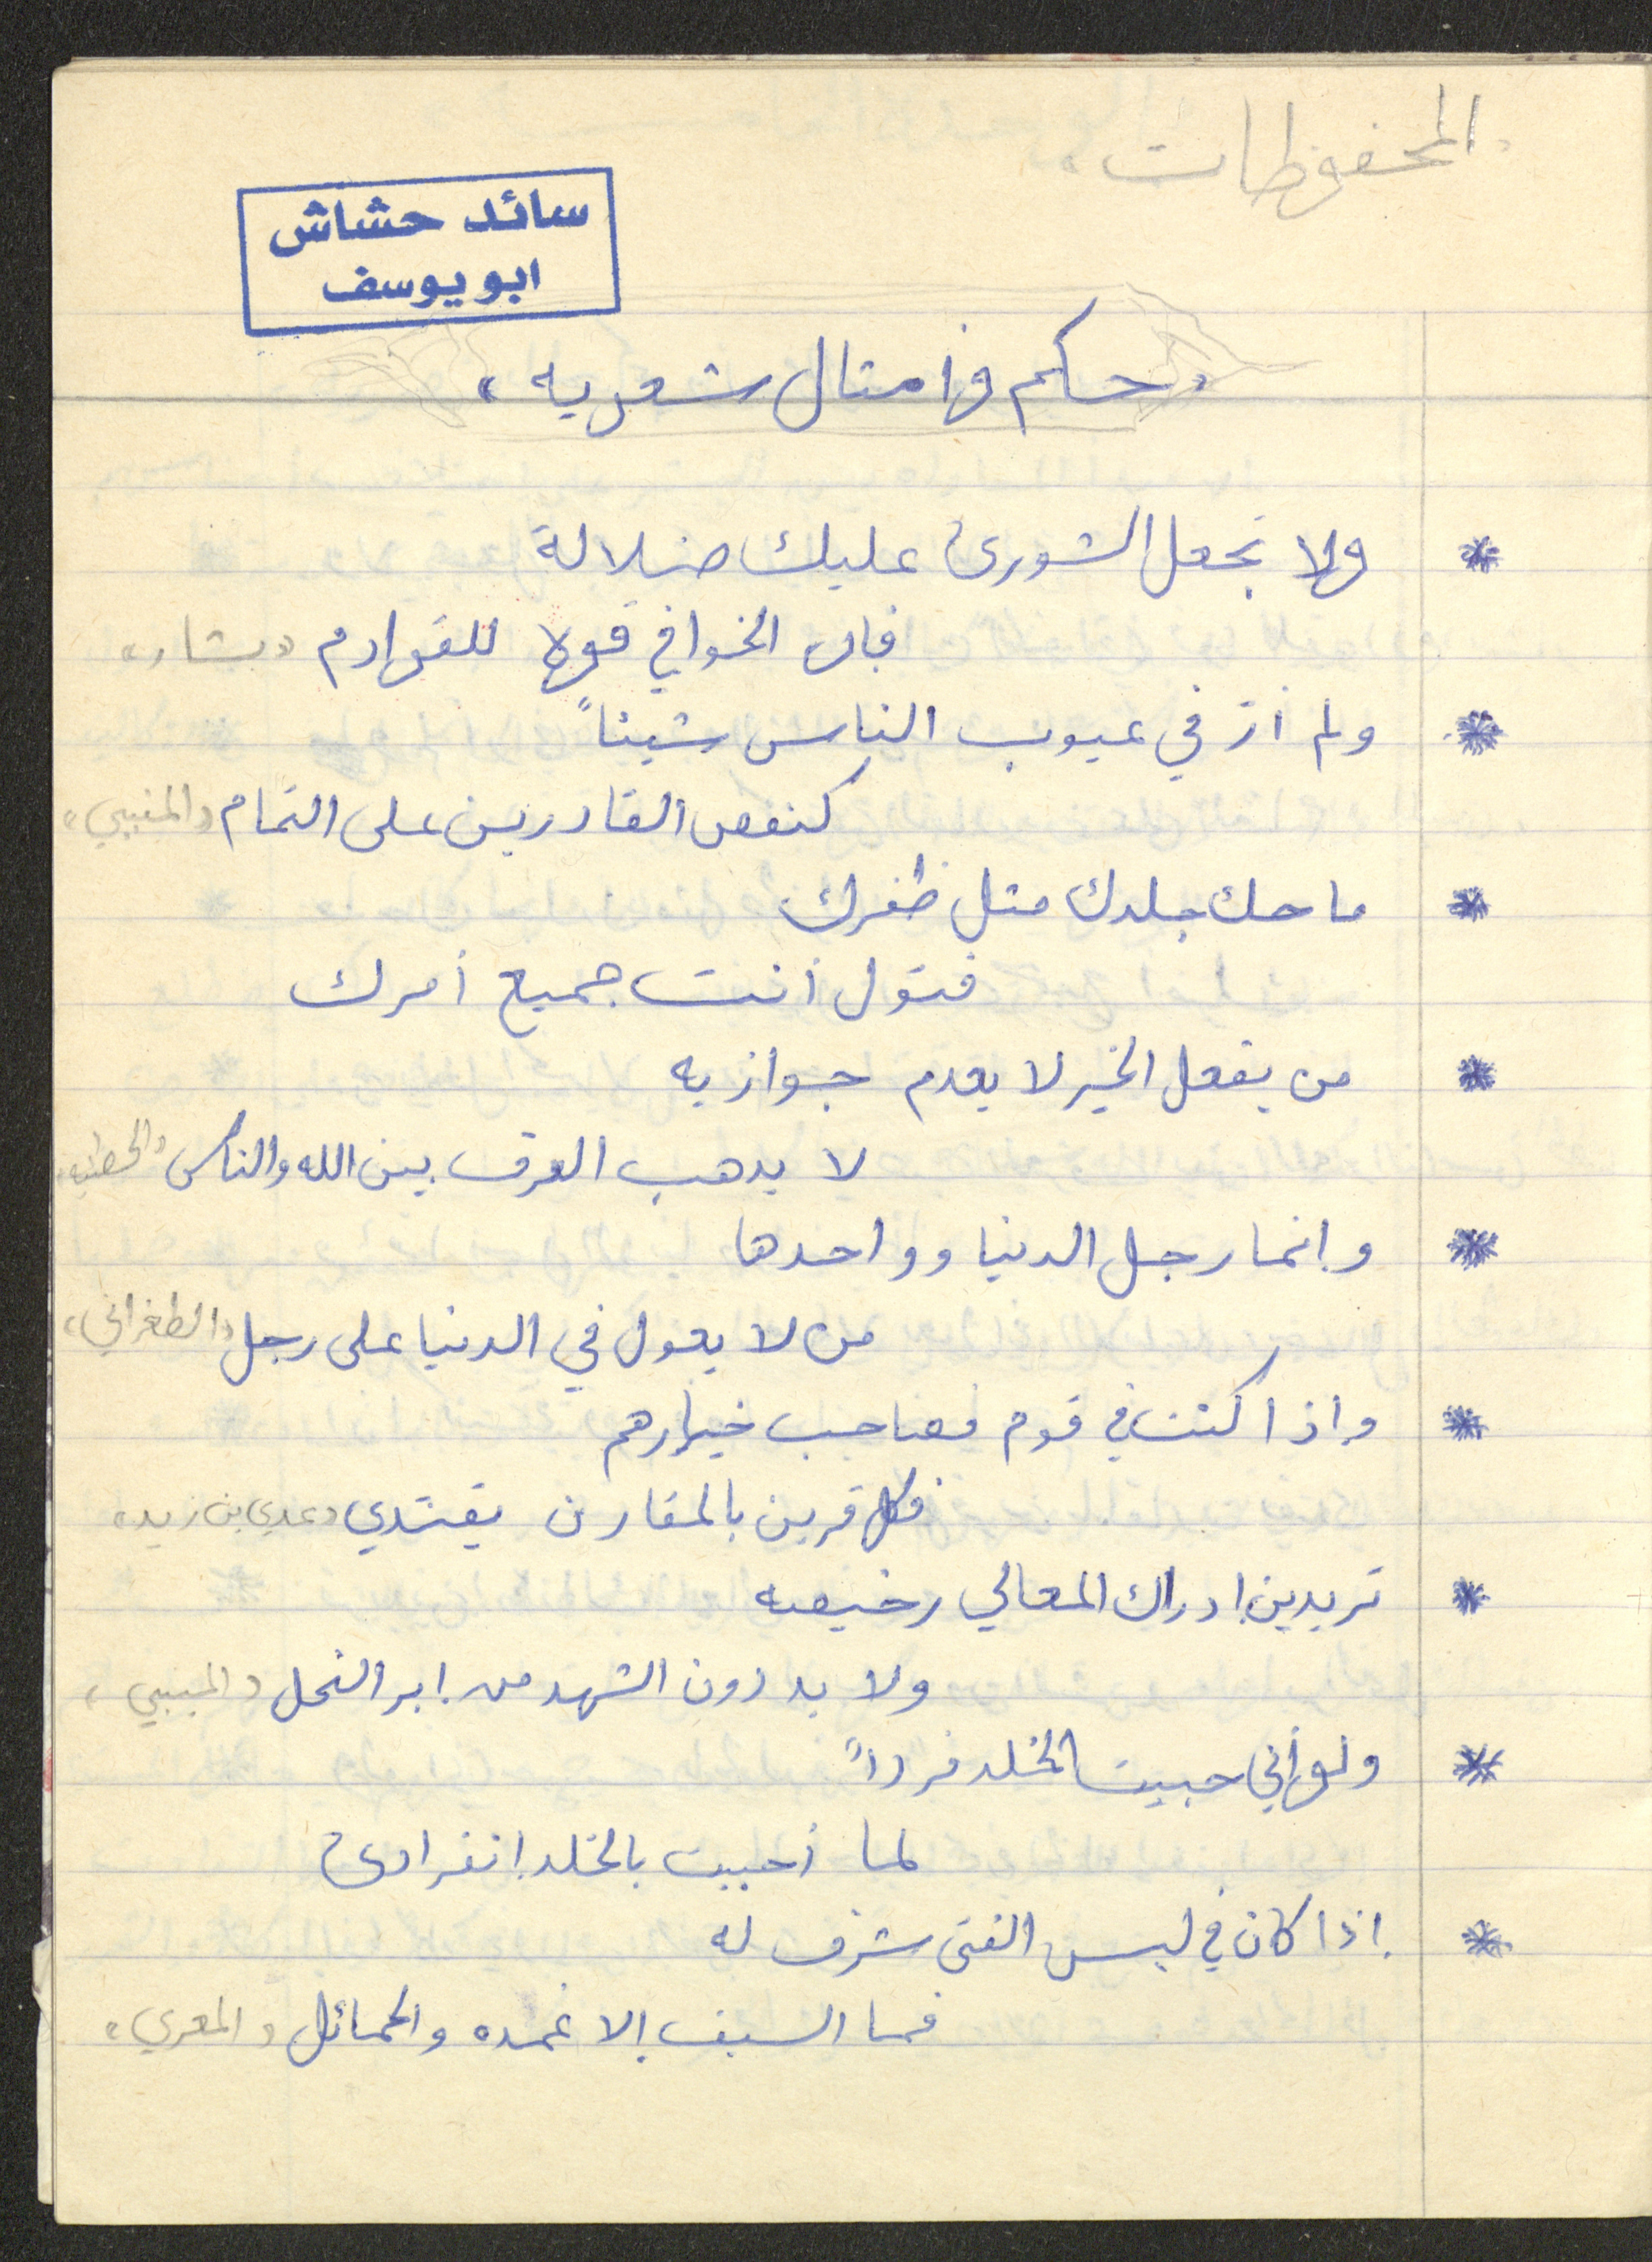 "المحفوظات"
سائد حشاش
ابو يوسف
"حكم وأمثال شعريه"
* ولا تجعل الشورى عليك ضلالة
فإن الخوافي قوة للقوادم "بشار"
* ولم أر في عيوب الناس شيئاً
كنقص القادرين على التمام "المتنبي"
* ما حك جلدك مثل ظفرك
فتول أنت جميع أمرك
* من يفعل الخير لا يعدم جوازيه
لا يذهب العرف بين الله والناس "الحطيئه"
* وإنما رجل الدنيا وواحدها
من لا يعول في الدنيا على رجل "الطغرائي"
* وإذا كنت في قوم فصاحب خيارهم
فكل قرين بالمقارن يقتدي "عدي بن زيد"
* تريدين إدراك المعالي رخيصه
ولا بد دون الشهد من إبر النحل "المتنبي"
* ولو أني حبيت الخلد فرداً
لما أحببت بالخلد انفرادى
* إذا كان في لبس الفتى شرف له
فما السيف إلا غمده والحمائل "المعري"